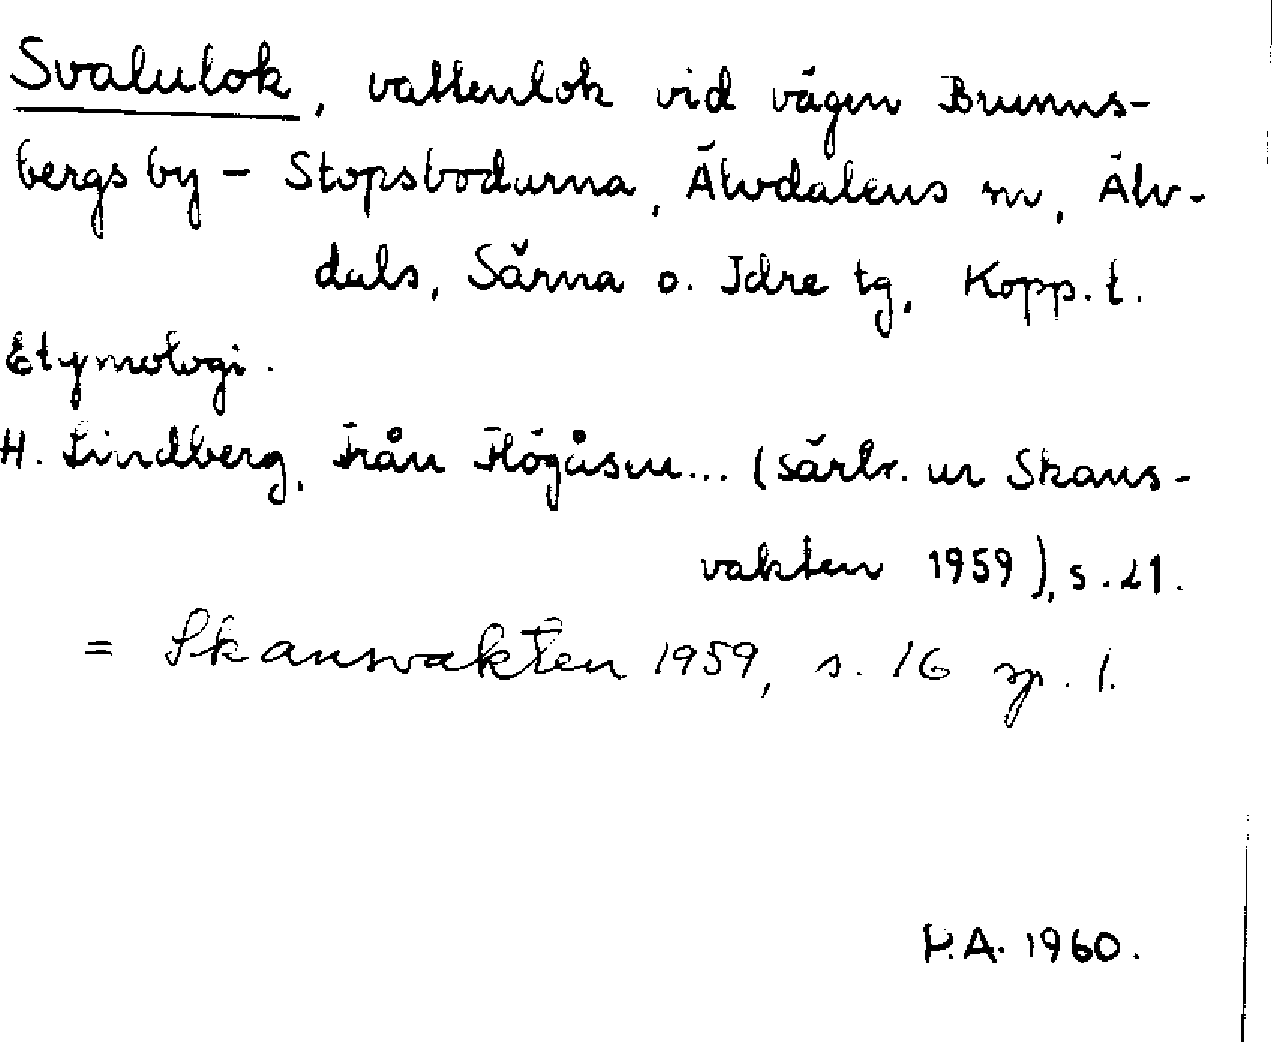 Svalulok, vattenlok vid vägen Brunns-
bergs by - Stopsbodarna, Älvdalens sn, Älv-
dals, Särna o. Idre tg, Kopp. l.
Etymologi.
H. Lindberg, Från Högåsen... (särtr. ur Skans-
vakten 1959), s. 21.
= Skansvakten 1959, s. 16 sp. 1.
P.A. 1960.